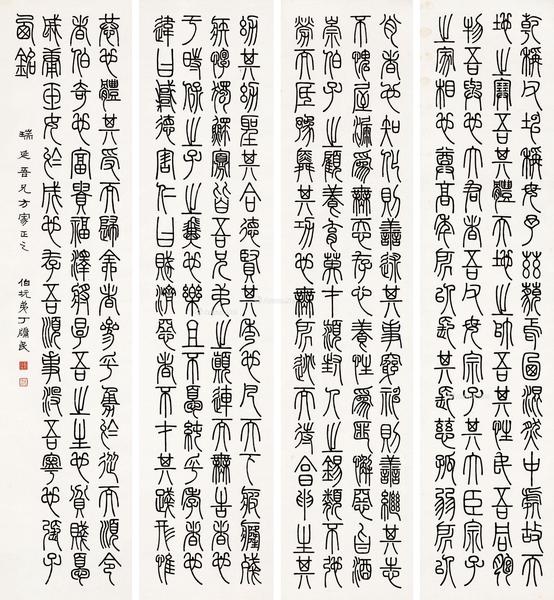 乾稱父坤稱母予茲藐焉乃混然中處故天
地之塞吾其體天地之帥吾其性民吾同胞
物吾與也大君者吾父母宗子其大臣宗子
之家相也尊高年所以長其長慈孤弱所以
幼其幼聖其合德賢其秀也凡天下疲癃殘
疾惸獨鰥寡皆吾兄弟之顛連而無告者也
于時保之子之翼也樂且不憂純乎孝者也
違曰悖德害仁曰賊濟惡者不才其踐形惟
肖者也知化則善述其事窮神則善繼其志
不愧屋漏為無忝存心養性為匪懈惡旨酒
崇伯子之顧養育英才潁封人之錫類不弛
勞而厎豫舜其功也無所逃而待烹申生其
恭也體其受而歸全者參乎勇於從而順令
者伯奇也富貴福澤將厚吾之生也貧賤憂
戚庸玉女於成也存吾順事沒吾寧也張子
西銘
瑞廷吾兄方家正之 伯弟丁民